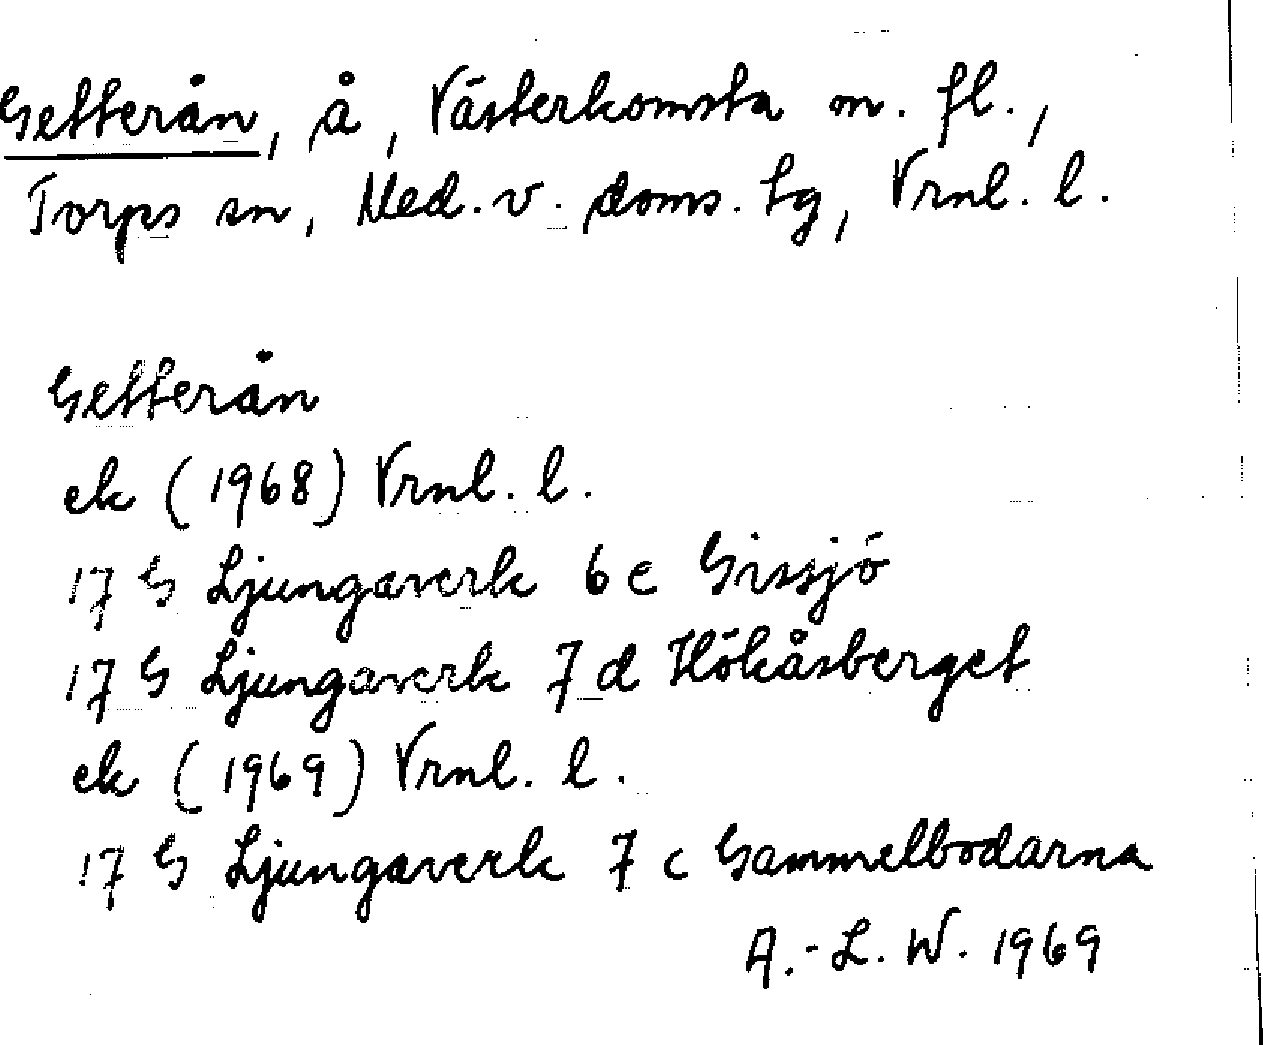 Getterån, å, Västerkomsta m. fl.,
Torps sn, Med. v. doms. tg, Vrnl. l.
Getterån
ek (1968) Vrnl. l.
17 G Ljungaverk 6 e Gissjö
17 G Ljungaverk 7 d Hökåsberget
ek (1969) Vrnl. l.
17 G Ljungaverk 7 c Gammelbodarna
A.-L. W. 1969